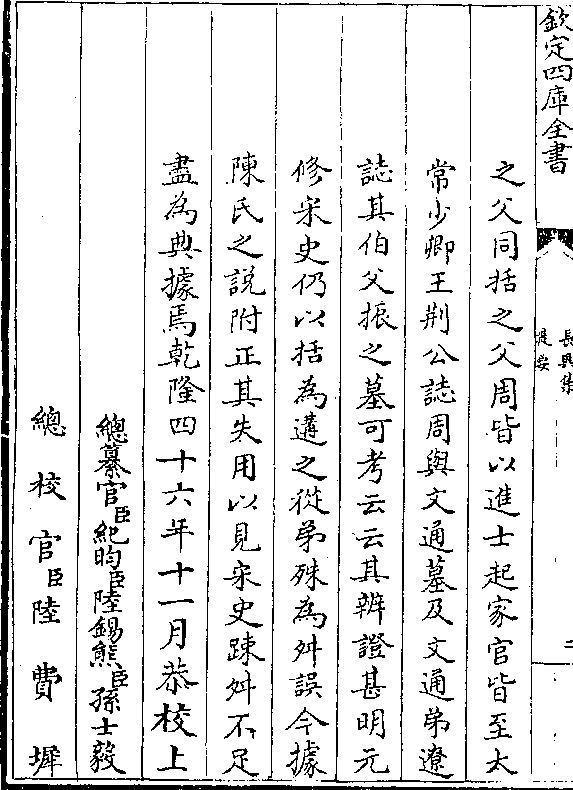 欽定四庫全書
長興集
提要
二
之父同括之父周皆以進士起家官皆至太
常少卿王荆公誌周與文通墓及文通弟遼
誌其伯父振之墓可考云云其辨證甚明元
修宋史仍以括為遘之從弟殊為舛誤今據
陳氏之說附正其失用以見宋史踈舛不足
盡為典據焉乾隆四十六年十一月恭校上
總纂官臣紀昀臣陸錫熊臣孫士毅
總校官臣陸費墀